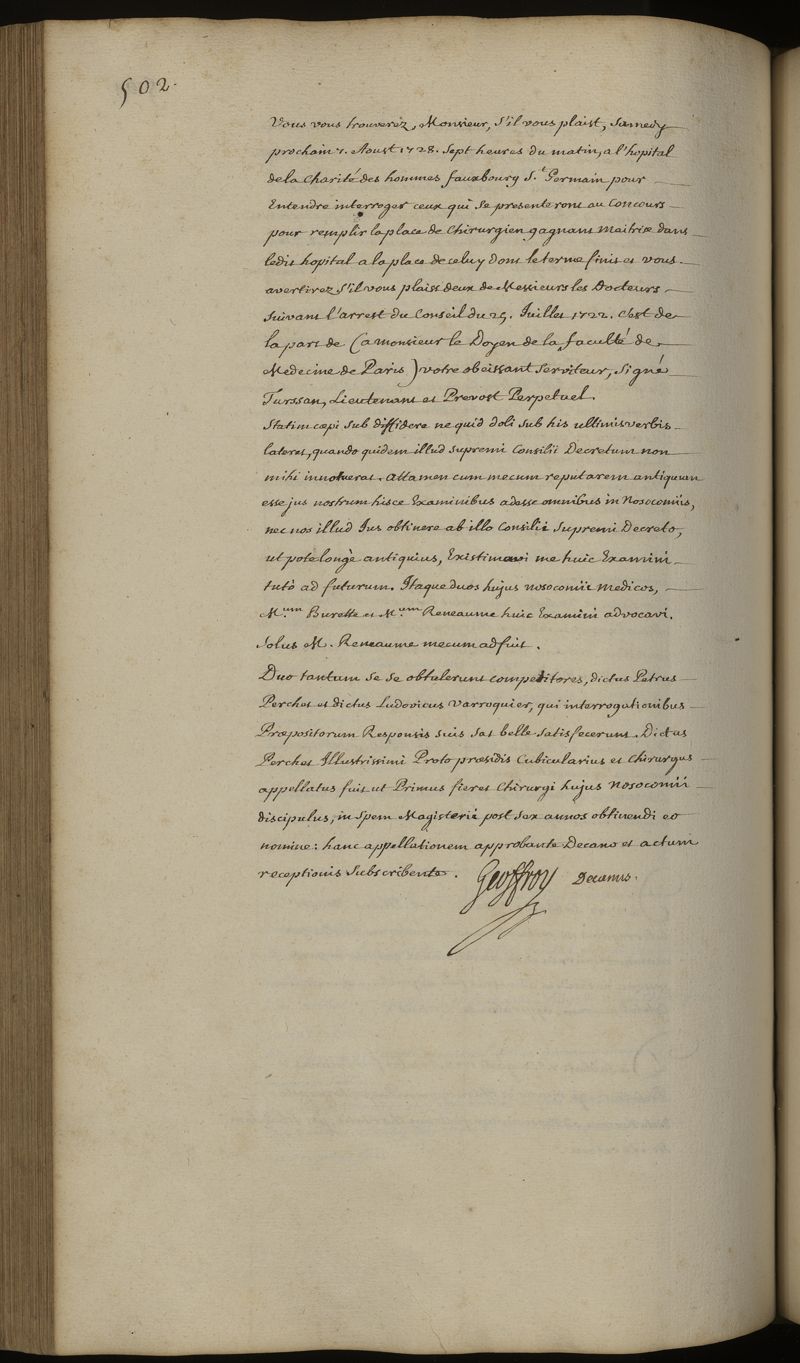 502.
Vous vous trouverez, Monsieur, S'il vous plaist, Samedy
prochain 7. Aoust 1728. Sept heures du matin, a l'hopital
de la Charité des hommes fauxbourg S.t Germain pour
Entendre interroger ceux qui se presenteront au Concours
pour remplir la place de Chirurgien gagnant Maitrise dans
ledit hopital a la place de celuy dont le terme finit et vous
avertirez S'il vous plaist deux de Messieurs les Docteurs
suivant l'arrest du Conseil du 25. Juillet 1722. C'est de
la part de (a monsieur le Doyen de la faculté de
Medecine de Paris) votre obeissant Serviteur, Signé
Tursan, Lieutenant et Prevost Perpetuel.
Statim cœpi sub diffidere ne quid doli sub his ultimis verbis
lateret, quando quidem illud supremi Consilii Decretum non
mihi innotuerat. attamen cum mecum reputarem antiquum
esse jus nostrum hisce Examinibus adesse omnibus in Nosocomiis,
nec nos illud Jus obtinere ab illo Consilii Supremi Decreto,
ut pote longè antiquius, Existimavi me huic Examini
tutò ad futurum. Itaque duos hujus nosocomii medicos,
M.um Burette et M.um Reneaume huic Examini advocavi.
Solus M. Reneaume mecum adfuit.
Duo tantum se se obtulerunt competitores, dictus Petrus
Perchet et dictus Ludovicus Varroquier, qui interrogationibus
Præpositorum Responsis suis sat belle satisfecerunt. Dictus
Perchet Illustrissimi Proto præsidis Cubicularius et Chirurgus
appellatus fuit ut Primus fieret Chirurgi hujus Nosocomii
discipulus, in Spem Magisterii post sex annos obtinendi eo
nomine: hanc appellationem approbante Decano et actum
receptionis Subscribente. Geoffroy Decanus.